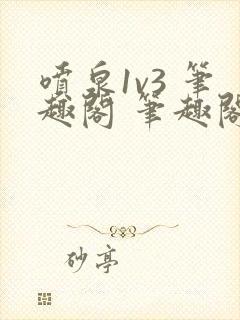 噴泉1v3 筆
趣閣 筆趣閣
砂亭